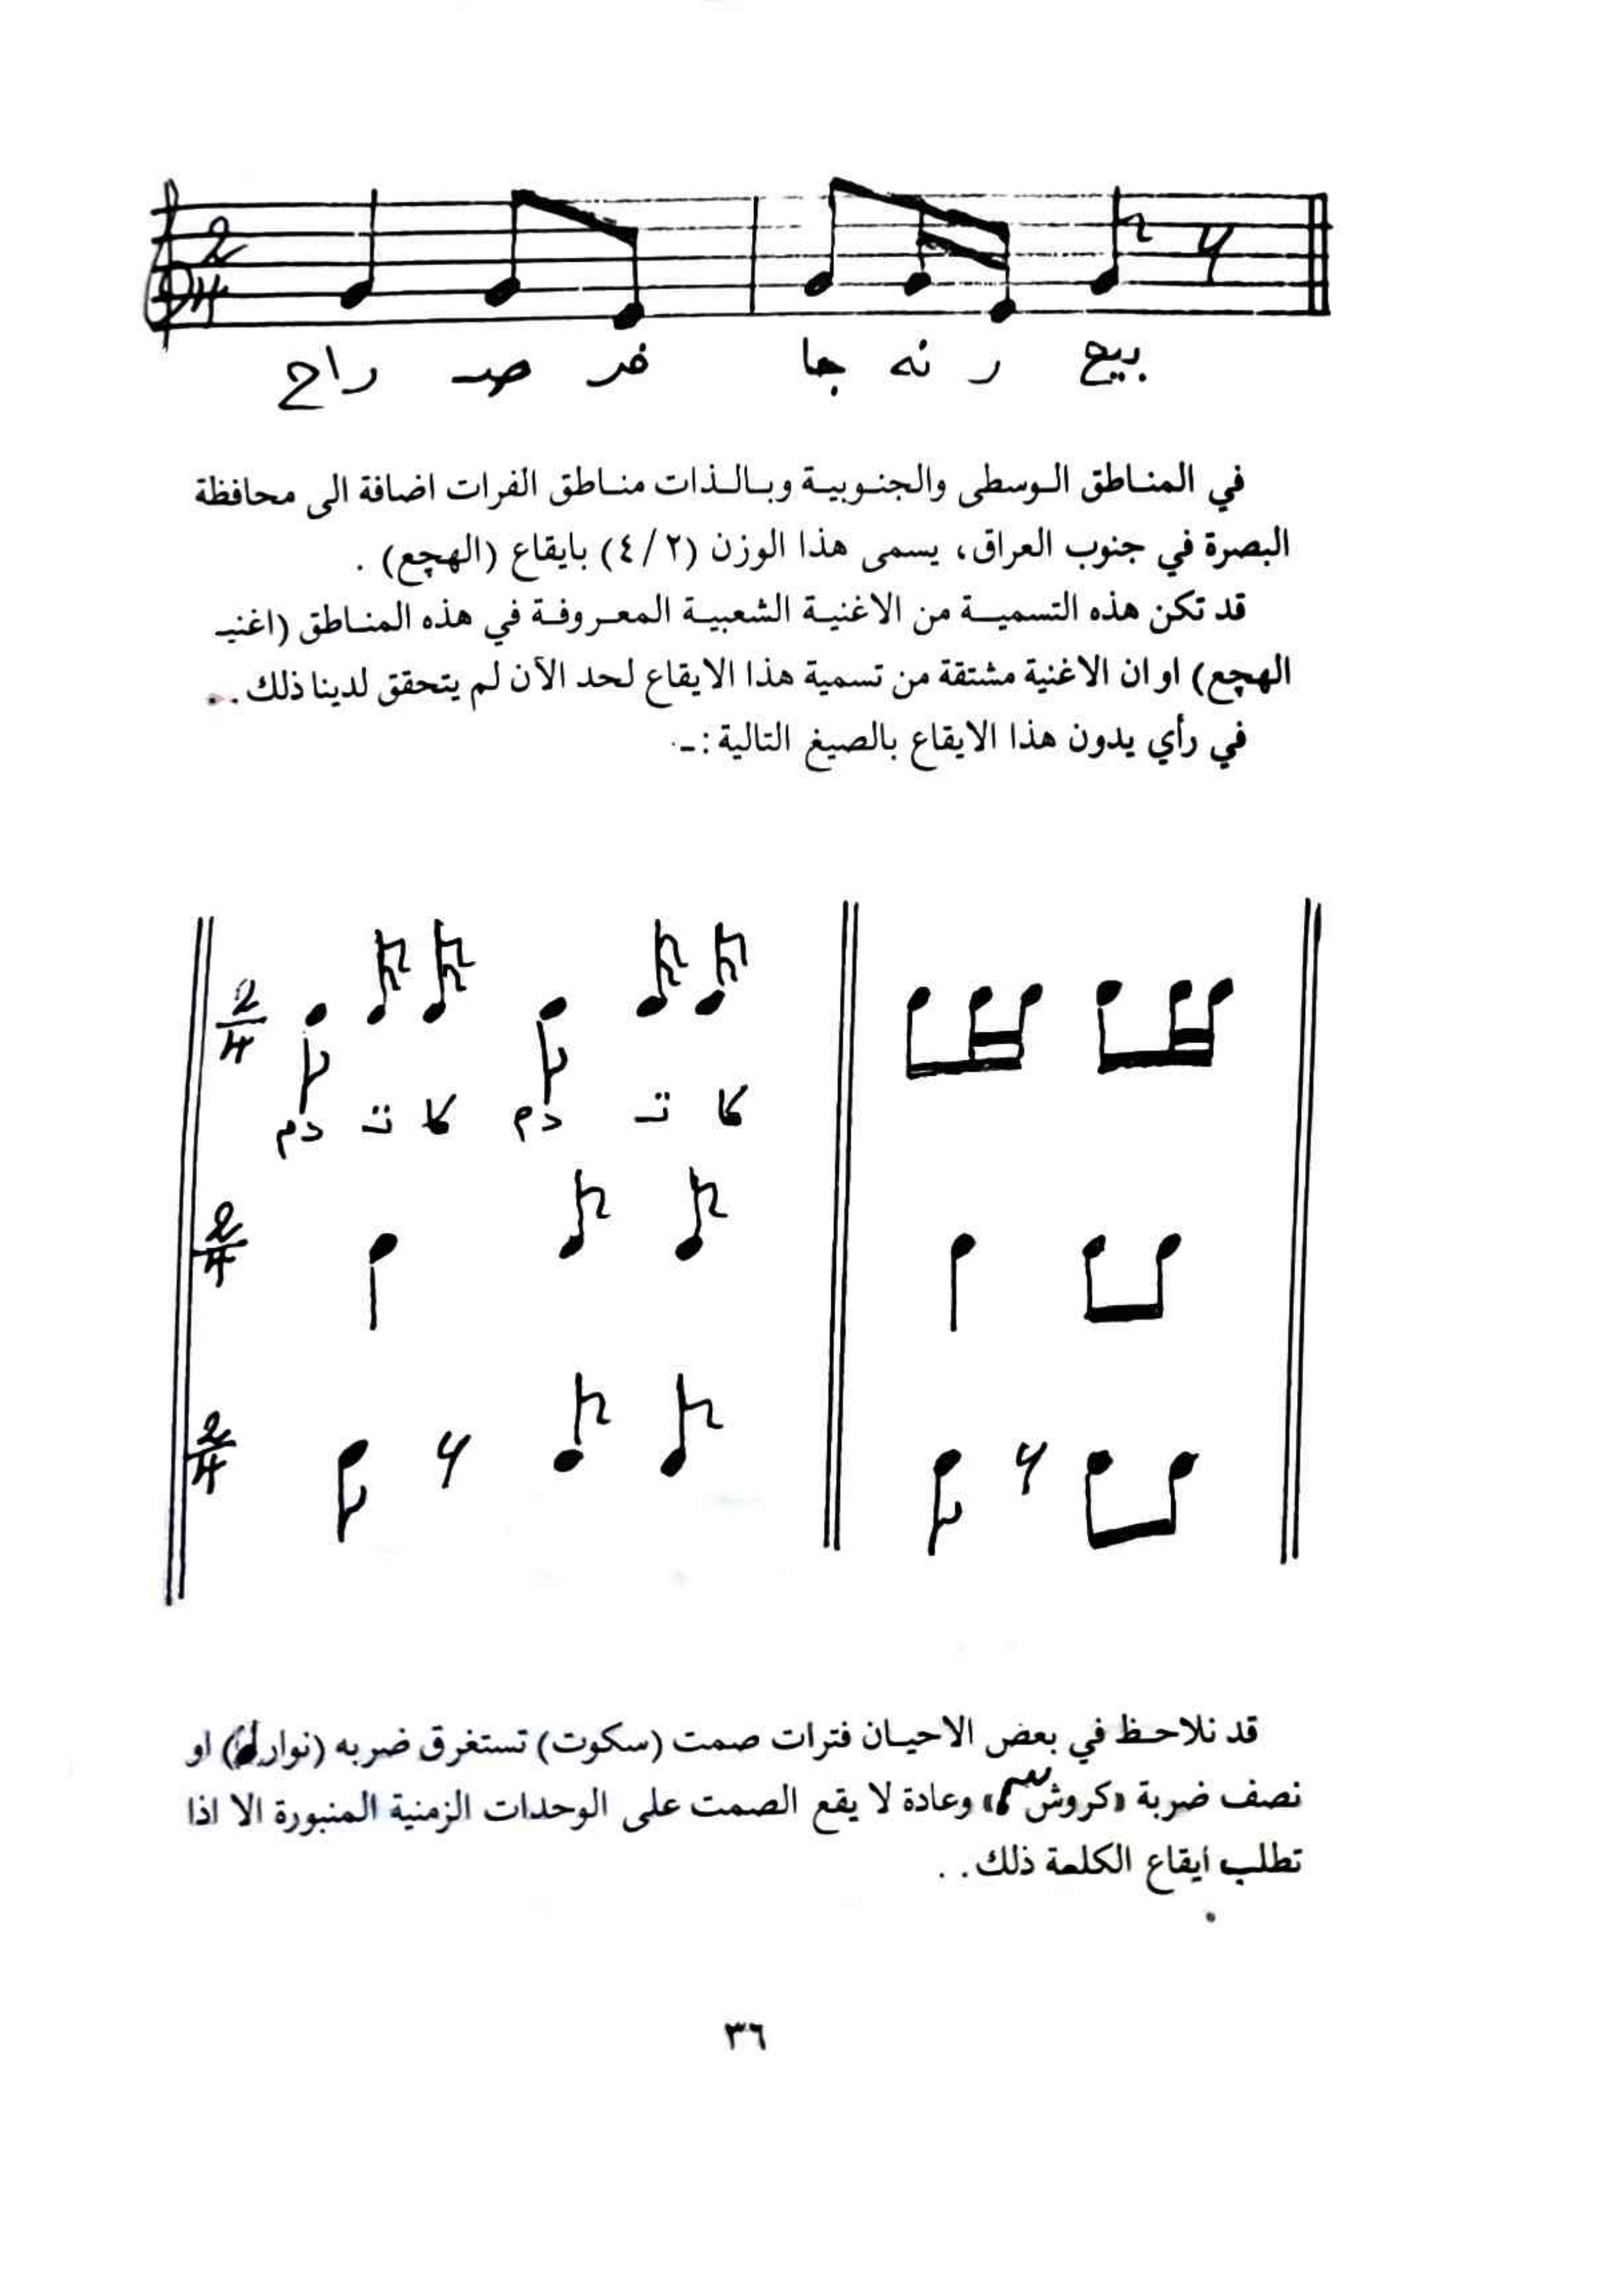 2
4
راح صـ فر جا نه ر بيع
في المناطق الوسطى والجنوبية وبالذات مناطق الفرات اضافة الى محافظة
البصرة في جنوب العراق، يسمى هذا الوزن (٤/٢) بايقاع (الهچع) .
قد تكن هذه التسمية من الاغنية الشعبية المعروفة في هذه المناطق (اغنيـ
الهچع) او ان الاغنية مشتقة من تسمية هذا الايقاع لحد الآن لم يتحقق لدينا ذلك . .
في رأي يدون هذا الايقاع بالصيغ التالية : ـ
2
4
دم تـ كا دم تـ كا
2
4
2
4
قد نلاحظ في بعض الاحيان فترات صمت (سكوت) تستغرق ضربه (نوار) او
نصف ضربة «كروش» وعادة لا يقع الصمت على الوحدات الزمنية المنبورة الا اذا
تطلب ايقاع الكلمة ذلك . .
٣٦